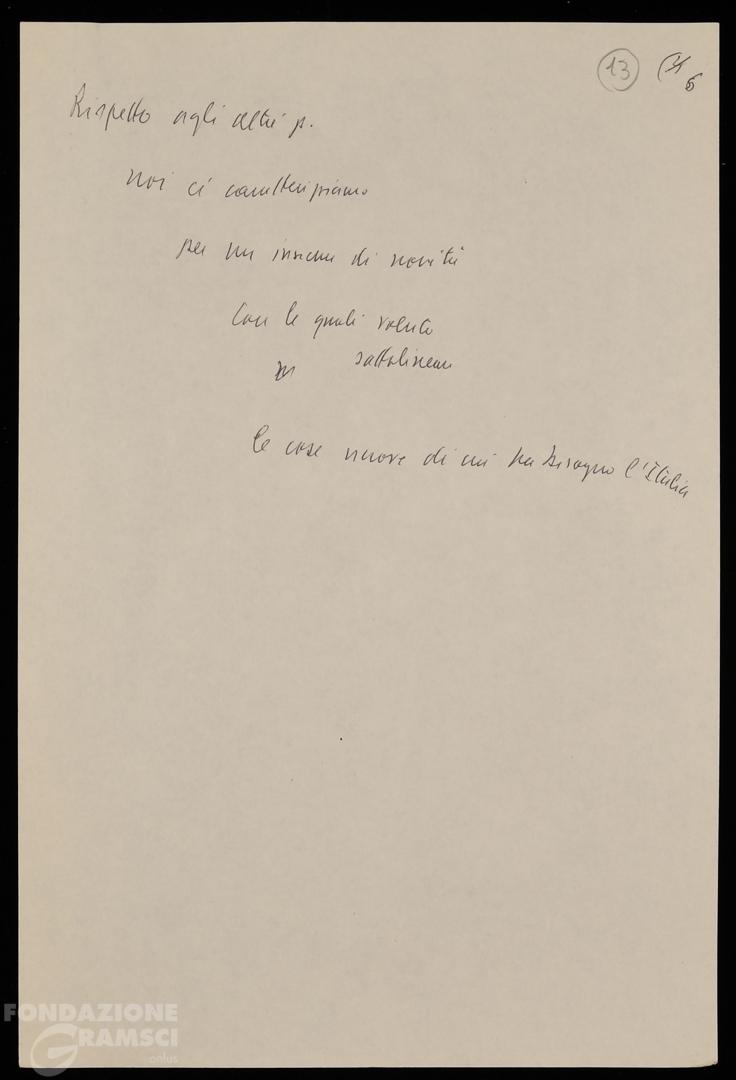 13
6
Rispetto agli altri p.
noi ci caratterizziamo
per un insieme di novità
Con le quali
sottolineare
le cose nuove di cui ha bisogno l'Italia
FONDAZIONE
GRAMSCI
onlus